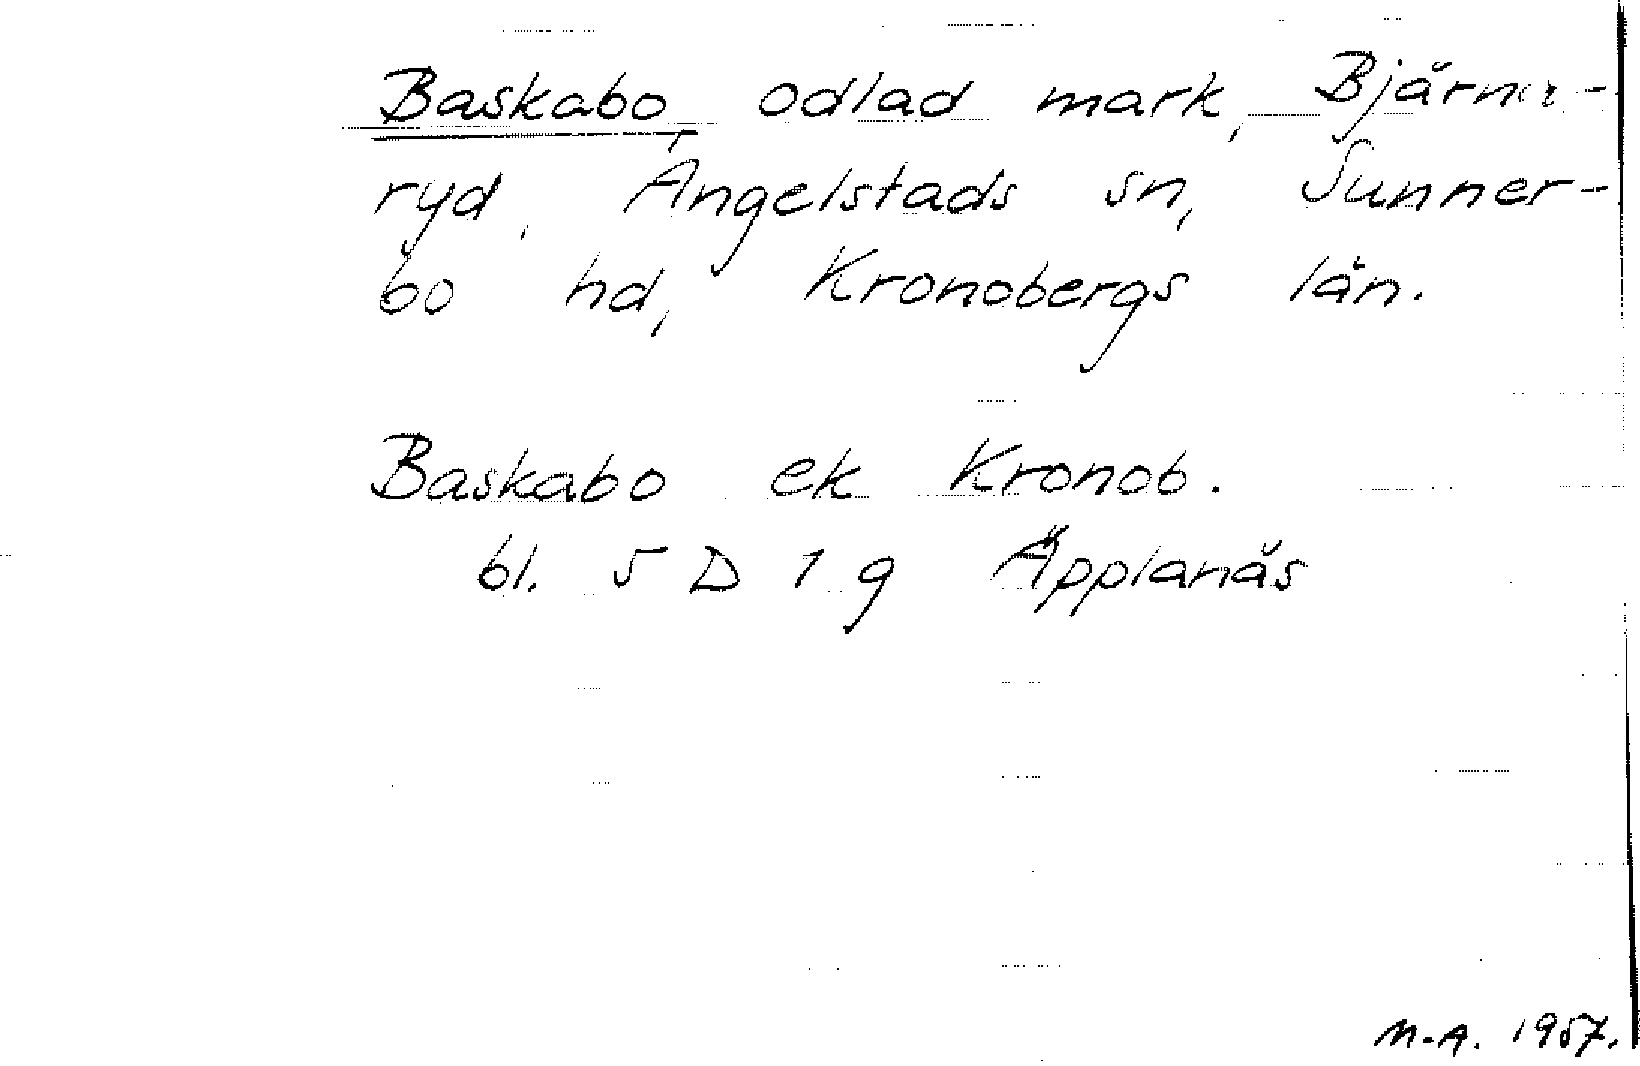 Baskabo, odlad mark, Bjärna-
ryd, Angelstads sn, Sunner-
bo hd, Kronobergs län.
Baskabo ek Kronob.
bl. 5 D 1 g Äpplanäs
M.A. 1957.